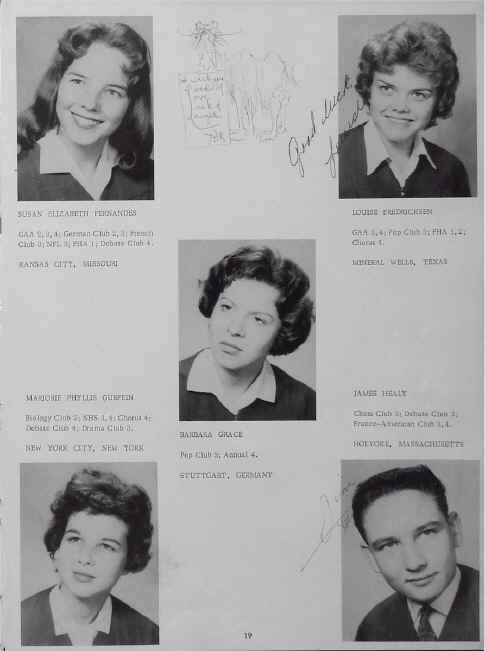 Good luck
SUSAN ELIZABETH FERNANDES
GAA 2,3,4; German Club 2,3; French
Club 3; NFL 3; FHA 1; Debate Club 4.
KANSAS CITY, MISSOURI
LOUISE FREDRICKSEN
GAA 3,4; Pep Club 3; FHA 1,2;
Chorus 4.
MINERAL WELLS, TEXAS
MARJORIE PHYLLIS GURFEIN
Biology Club 2; NHS 3,4; Chorus 4;
Debate Club 4; Drama Club 3.
NEW YORK CITY, NEW YORK
BARBARA GRACE
Pep Club 3; Annual 4.
STUTTGART, GERMANY
JAMES HEALY
Chess Club 3; Debate Club 3;
Franco-American Club 3,4.
HOLYOKE, MASSACHUSETTS
Jim
19